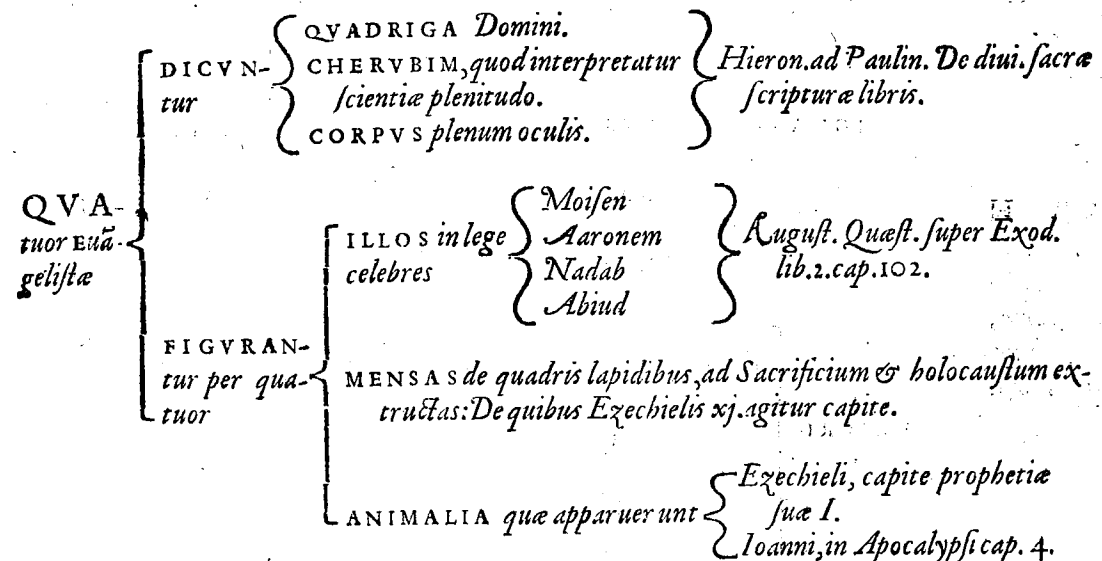 QVA-
tuor Euã-
gelistæ
DICVN-
tur
QVADRIGA Domini.
CHERVBIM, quod interpretatur
scientiæ plenitudo.
CORPVS plenum oculis.
Hieron. ad Paulin. De diui. sacræ
scripturæ libris.
FIGVRAN-
tur per qua-
tuor
ILLOS in lege
celebres
Moisen
Aaronem
Nadab
Abiud
August. Quæst. super Exod.
lib.2.cap.102.
MENSAS de quadris lapidibus, ad Sacrificium & holocaustum ex-
tructas: De quibus Ezechielis xj. agitur capite.
ANIMALIA quæ apparuerunt
Ezechieli, capite prophetiæ
suæ I.
Ioanni, in Apocalypsi cap. 4.